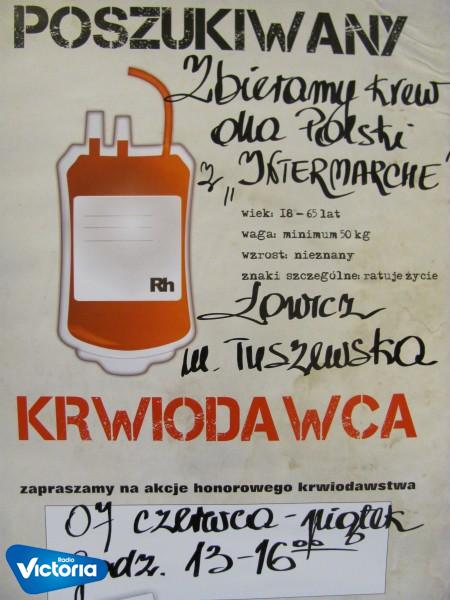 POSZUKIWANY
Zbieramy krew
dla Polski
z „INTERMARCHE"
wiek: 18-65 lat
waga: minimum 50 kg
wzrost: nieznany
znaki szczególne: ratuje życie
Rh
Łowicz
ul. Tuszewska
KRWIODAWCA
zapraszamy na akcje honorowego krwiodawstwa
07 czerwca - piątek
godz. 13-16⁰⁰
Radio
Victoria